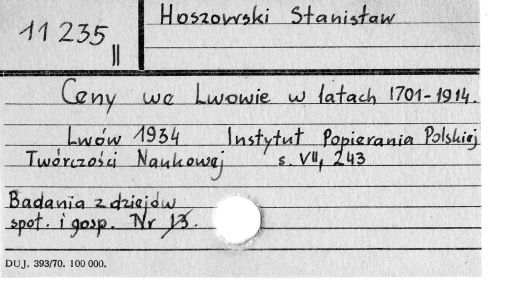 11 235
II
Hoszowski Stanisław
Ceny we Lwowie w latach 1701-1914.
Lwów 1934 Instytut Popierania Polskiej
Twórczości Naukowej s. VII, 243
Badania z dziejów
społ. i gosp. Nr 13.
DUJ. 393/70. 100 000.